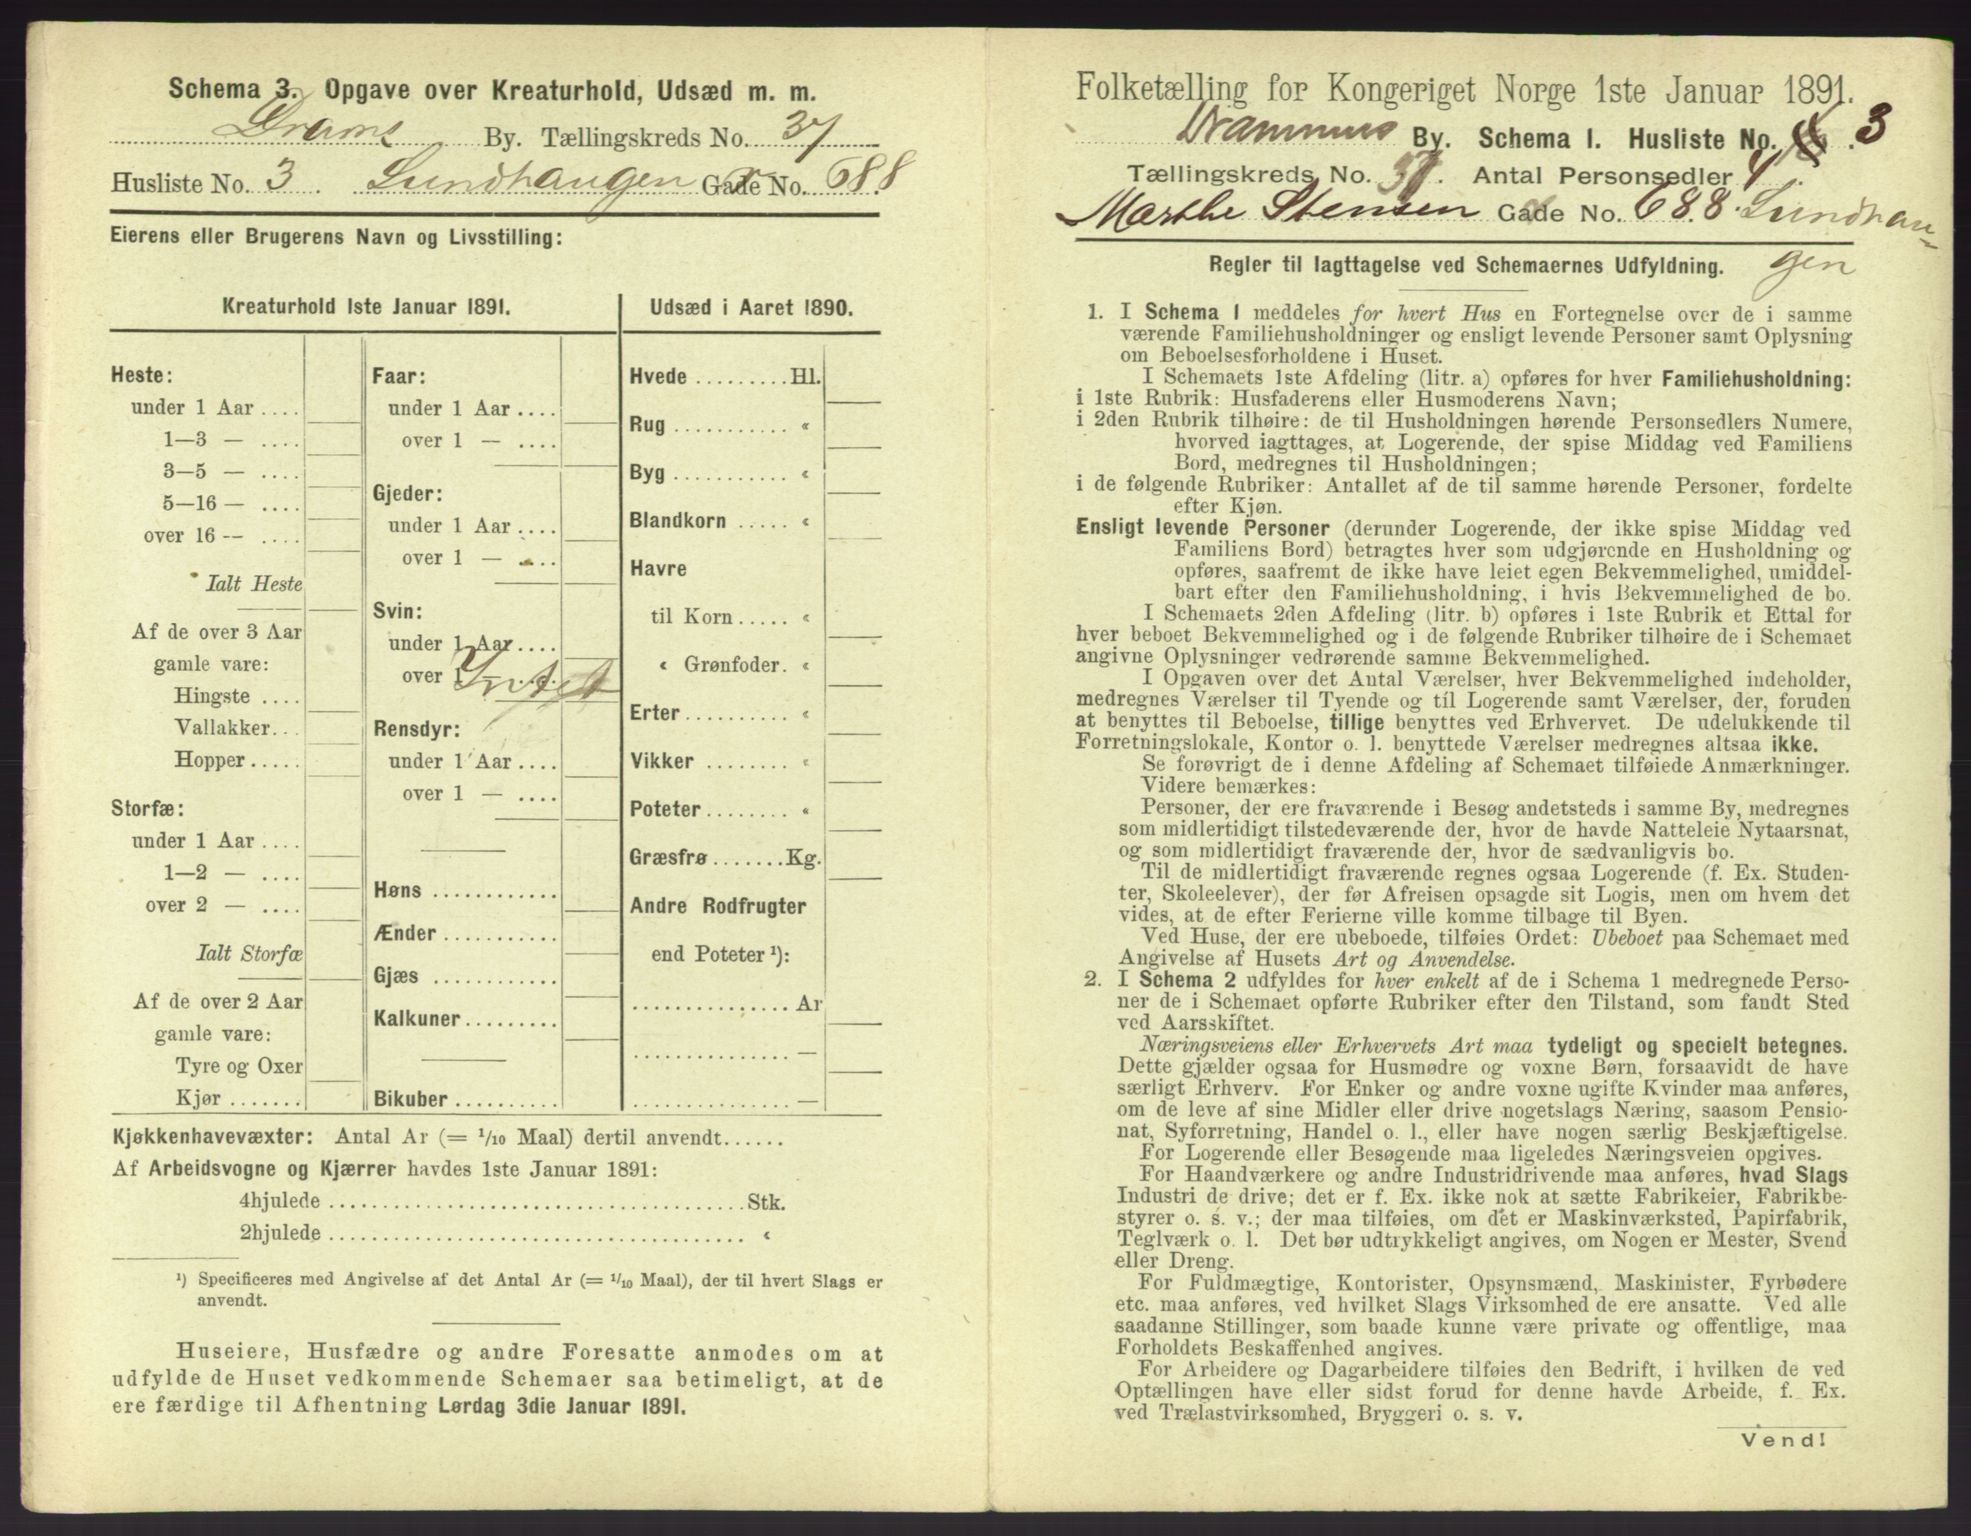 Schema 3. Opgave over Kreaturhold, Udsæd m. m.
Drams By. Tællingskreds No. 37
Husliste No. 3 Sundhaugen Gade No. 688
Eierens eller Brugerens Navn og Livsstilling:
Kreaturhold 1ste Januar 1891.
Heste:
under 1 Aar ....
1—3 — ....
3—5 — ....
5—16 — ....
over 16 — ....
Ialt Heste
Af de over 3 Aar
gamle vare:
Hingste ....
Vallakker...
Hopper.....
Storfæ:
under 1 Aar ....
1—2 — ....
over 2 — ....
Ialt Storfæ
Af de over 2 Aar
gamle vare:
Tyre og Oxer
Kjør .......
Faar:
under 1 Aar ....
over 1 — ....
Gjeder:
under 1 Aar ....
over 1 — ....
Svin:
under 1 Aar....
over 1 — ....
Intet
Rensdyr:
under 1 Aar ....
over 1 — ....
Høns ............
Ænder ...........
Gjæs ............
Kalkuner.........
Bikuber ..........
Udsæd i Aaret 1890.
Hvede .........Hl.
Rug ........... «
Byg ........... «
Blandkorn ..... «
Havre
til Korn ..... «
« Grønfoder. «
Erter.......... «
Vikker ........ «
Poteter........ «
Græsfrø.......Kg.
Andre Rodfrugter
end Poteter ¹):
............... Ar
............... —
............... —
Kjøkkenhavevæxter: Antal Ar (= 1/10 Maal) dertil anvendt......
Af Arbeidsvogne og Kjærrer havdes 1ste Januar 1891:
4hjulede ..................................... Stk.
2hjulede ..................................... «
¹) Specificeres med Angivelse af det Antal Ar (= 1/10 Maal), der til hvert Slags er
anvendt.
Huseiere, Husfædre og andre Foresatte anmodes om at
udfylde de Huset vedkommende Schemaer saa betimeligt, at de
ere færdige til Afhentning Lørdag 3die Januar 1891.
Folketælling for Kongeriget Norge 1ste Januar 1891.
Drammens By. Schema I. Husliste No. 3
Tællingskreds No. 37. Antal Personsedler 4
Marthe Stensen Gade No. 688. Sundhau-
gen
Regler til Iagttagelse ved Schemaernes Udfyldning.
1. I Schema I meddeles for hvert Hus en Fortegnelse over de i samme
værende Familiehusholdninger og ensligt levende Personer samt Oplysning
om Beboelsesforholdene i Huset.
I Schemaets 1ste Afdeling (litr. a) opføres for hver Familiehusholdning:
i 1ste Rubrik: Husfaderens eller Husmoderens Navn;
i 2den Rubrik tilhøire: de til Husholdningen hørende Personsedlers Numere,
hvorved iagttages, at Logerende, der spise Middag ved Familiens
Bord, medregnes til Husholdningen;
i de følgende Rubriker: Antallet af de til samme hørende Personer, fordelte
efter Kjøn.
Ensligt levende Personer (derunder Logerende, der ikke spise Middag ved
Familiens Bord) betragtes hver som udgjørende en Husholdning og
opføres, saafremt de ikke have leiet egen Bekvemmelighed, umiddel-
bart efter den Familiehusholdning, i hvis Bekvemmelighed de bo.
I Schemaets 2den Afdeling (litr. b) opføres i 1ste Rubrik et Ettal for
hver beboet Bekvemmelighed og i de følgende Rubriker tilhøire de i Schemaet
angivne Oplysninger vedrørende samme Bekvemmelighed.
I Opgaven over det Antal Værelser, hver Bekvemmelighed indeholder,
medregnes Værelser til Tyende og til Logerende samt Værelser, der, foruden
at benyttes til Beboelse, tillige benyttes ved Erhvervet. De udelukkende til
Forretningslokale, Kontor o. l. benyttede Værelser medregnes altsaa ikke.
Se forøvrigt de i denne Afdeling af Schemaet tilføiede Anmærkninger.
Videre bemærkes:
Personer, der ere fraværende i Besøg andetsteds i samme By, medregnes
som midlertidigt tilstedeværende der, hvor de havde Natteleie Nytaarsnat,
og som midlertidigt fraværende der, hvor de sædvanligvis bo.
Til de midlertidigt fraværende regnes ogsaa Logerende (f. Ex. Studen-
ter, Skoleelever), der før Afreisen opsagde sit Logis, men om hvem det
vides, at de efter Ferierne ville komme tilbage til Byen.
Ved Huse, der ere ubeboede, tilføies Ordet: Ubeboet paa Schemaet med
Angivelse af Husets Art og Anvendelse.
2. I Schema 2 udfyldes for hver enkelt af de i Schema 1 medregnede Perso-
ner de i Schemaet opførte Rubriker efter den Tilstand, som fandt Sted
ved Aarsskiftet.
Næringsveiens eller Erhvervets Art maa tydeligt og specielt betegnes.
Dette gjælder ogsaa for Husmødre og voxne Børn, forsaavidt de have
særligt Erhverv. For Enker og andre voxne ugifte Kvinder maa anføres,
om de leve af sine Midler eller drive nogetslags Næring, saasom Pensio-
nat, Syforretning, Handel o. l., eller have nogen særlig Beskjæftigelse.
For Logerende eller Besøgende maa ligeledes Næringsveien opgives.
For Haandværkere og andre Industridrivende maa anføres, hvad Slags
Industri de drive; det er f. Ex. ikke nok at sætte Fabrikeier, Fabrikbe-
styrer o. s. v.; der maa tilføies, om det er Maskinværksted, Papirfabrik,
Teglværk o. l. Det bør udtrykkeligt angives, om Nogen er Mester, Svend
eller Dreng.
For Fuldmægtige, Kontorister, Opsynsmænd, Maskinister, Fyrbødere
etc. maa anføres, ved hvilket Slags Virksomhed de ere ansatte. Ved alle
saadanne Stillinger, som baade kunne være private og offentlige, maa
Forholdets Beskaffenhed angives.
For Arbeidere og Dagarbeidere tilføies den Bedrift, i hvilken de ved
Optællingen have eller sidst forud for denne havde Arbeide, f. Ex.
ved Trælastvirksomhed, Bryggeri o. s. v.
Vend!